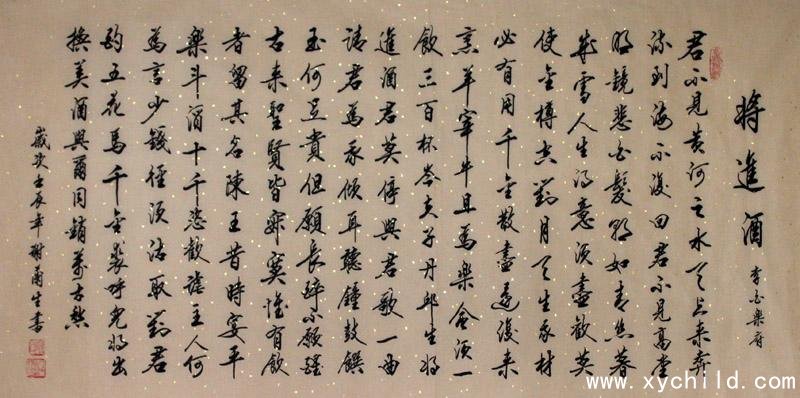 將進酒
李白樂府
君不見黃河之水天上來奔
流到海不復回君不見高堂
明鏡悲白髮朝如青絲暮
成雪人生得意須盡歡莫
使金樽空對月天生我材
必有用千金散盡還復來
烹羊宰牛且為樂會須一
飲三百杯岑夫子丹邱生將
進酒君莫停與君歌一曲
請君為我傾耳聽鐘鼓饌
玉何足貴但願長醉不願醒
古來聖賢皆寂寞惟有飲
者留其名陳王昔時宴平
樂斗酒十千恣歡謔主人何
為言少錢徑須沽取對君
酌五花馬千金裘呼兒將出
換美酒與爾同銷萬古愁
歲次壬辰年謝生書
www.xychild.com